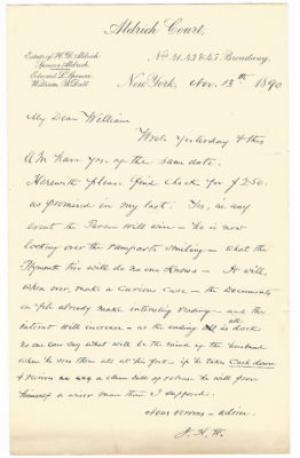 Aldrich Court,
Estate of H. D. Aldrich
Spencer Aldrich
Edward L. Spencer
William B. Dall
Nos. 41. 43 & 45. Broadway.
New York, Nov. 13th 1890
My Dear William
Wrote yesterday & this
A.M. have yos. of the same date.
Herewith please find check for $250.
as promised in my last. Yes, in any
event the Parson will win - he is now
looking over the ramparts smiling - what the
Plymouth trio will do no one knows - It will,
when over, make a curious case - the documents
on file already make interesting reading - and the
interest will increase - as the ending all is dark
no one can say what will be the mind of the husband
when he sees them all at his feet - if he takes Cash down
& receives a clean bill of release he will prove
himself a wiser man than I suppose.
Yours - adieu.